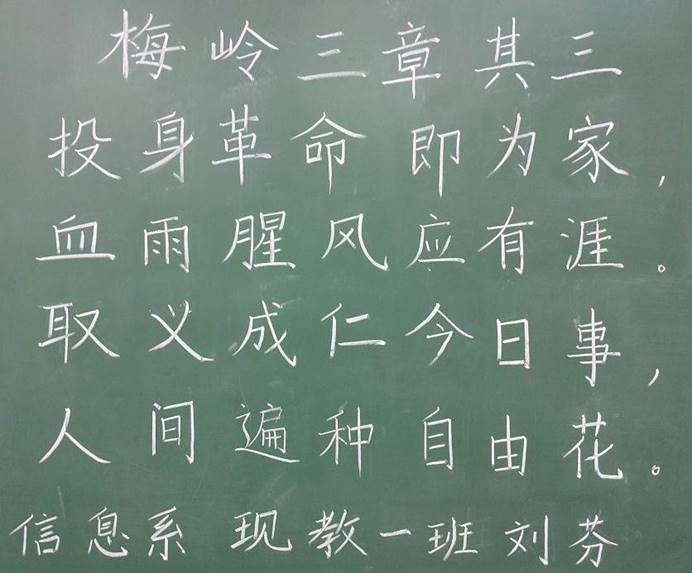 梅岭三章其三
投身革命即为家,
血雨腥风应有涯。
取义成仁今日事,
人间遍种自由花。
信息系 现教一班刘芬